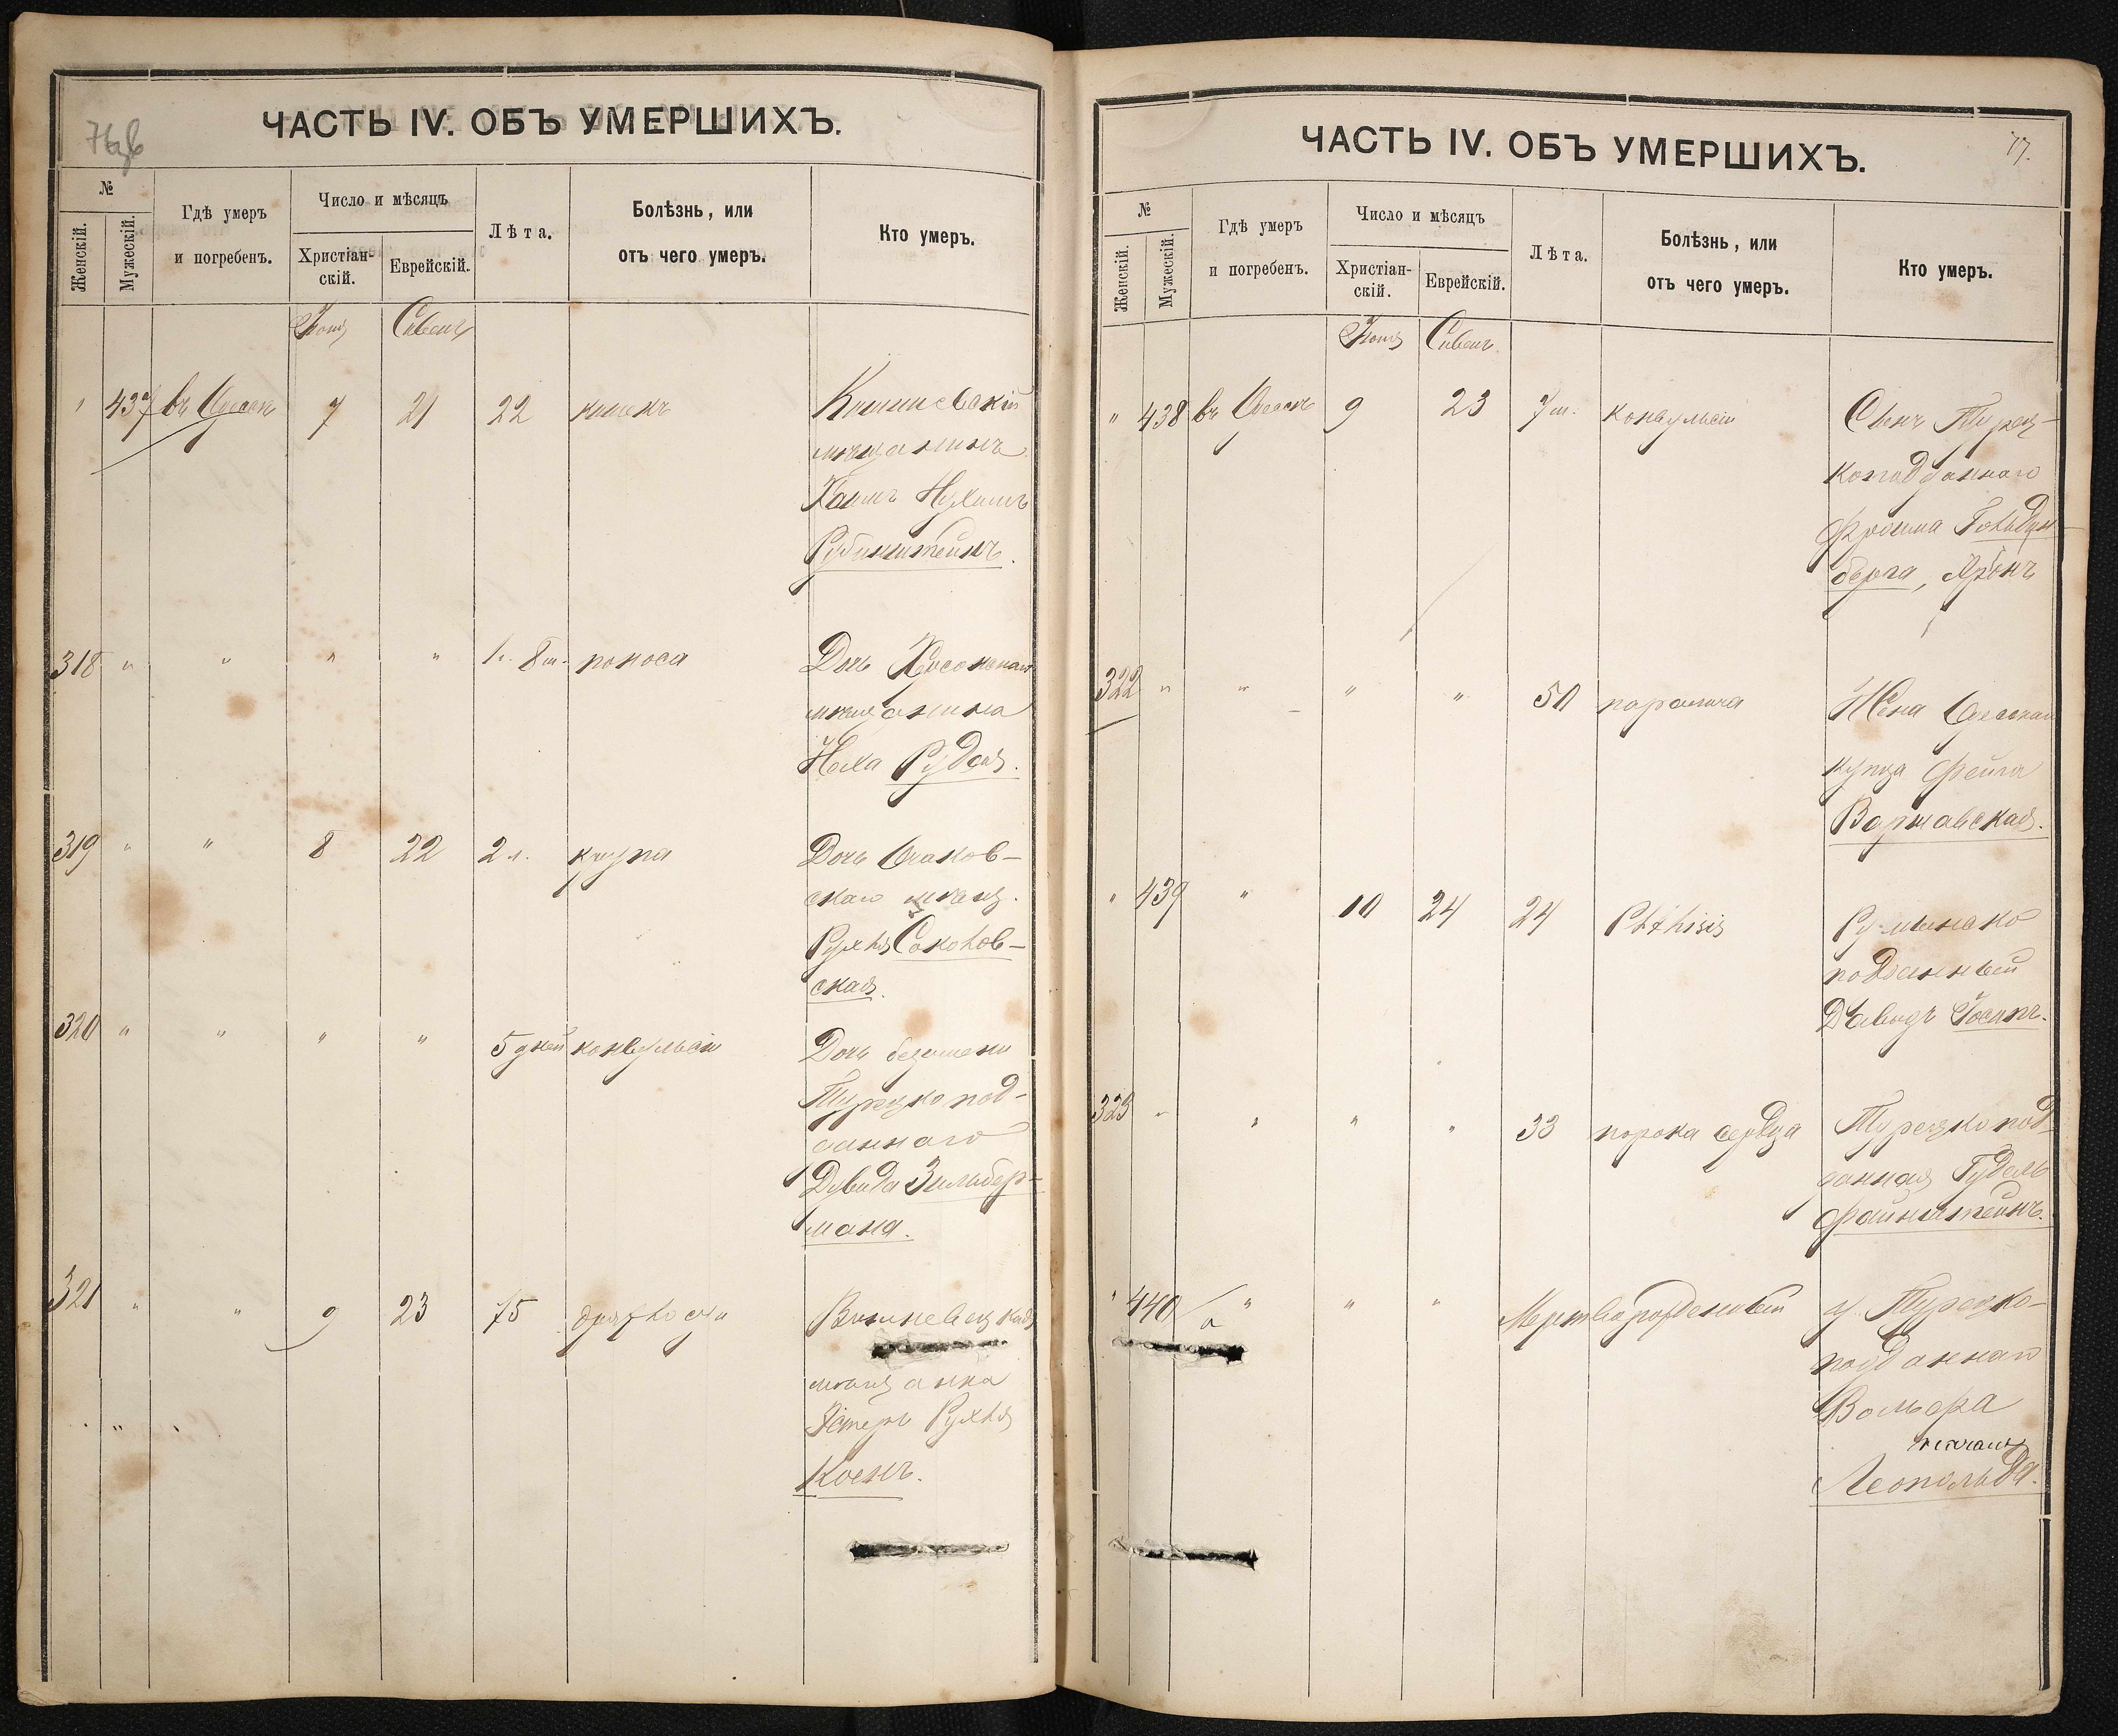 ЧАСТЬ IV. ОБЪ УМЕРШИХЪ.
№
Женскій.
Мужескій.
Гдѣ умеръ
и погребенъ.
Число и мѣсяцъ
Христіан-
скій.
Еврейскій.
Лѣта.
Болѣзнь, или
отъ чего умеръ.
Кто умеръ.
Іюня Сивенъ
" 437 въ Одессѣ 7 21 22
мѣщанинъ
Хаимъ Нухимъ
Рубинштейнъ.
318 " " " " 1 г. 8 м. поноса Дочь Херсонскаго
мѣщанина
Неха Рудая.
319 " " 8 22 2 л. крупа Дочь Очаков-
скаго мѣщ.
Рухля Соколов-
ская.
320 " " " " 5 дней конвульсіи Дочь безъ имени
Турецко под-
даннаго
Дувида Зильбер-
мана.
321 " " 9 23 75 дряхлости
мѣщанка
Эстеръ Рухля
Коенъ.
ЧАСТЬ IV. ОБЪ УМЕРШИХЪ.
77.
№
Женскій.
Мужескій.
Гдѣ умеръ
и погребенъ.
Число и мѣсяцъ
Христіан-
скій.
Еврейскій.
Лѣта.
Болѣзнь, или
отъ чего умеръ.
Кто умеръ.
Іюня Сивенъ
" 438 въ Одессѣ 9 23 7 м. конвульсіи Сынъ Турец-
коподданнаго
Фроима Гольден-
берга, Аронъ
322 " " " " 50 паралича Жена Одесскаго
купца Фейга
Варшавская.
" 439 " 10 24 24 Phthisis Румынско
подданный
Давидъ Іосипъ.
323 " " " " 33 порока сердца Турецкопод-
данная Гудель
Файнштейнъ.
" 440 " " " Мертворожденный у Турецко-
подданнаго
Вольфа
Леопольда.